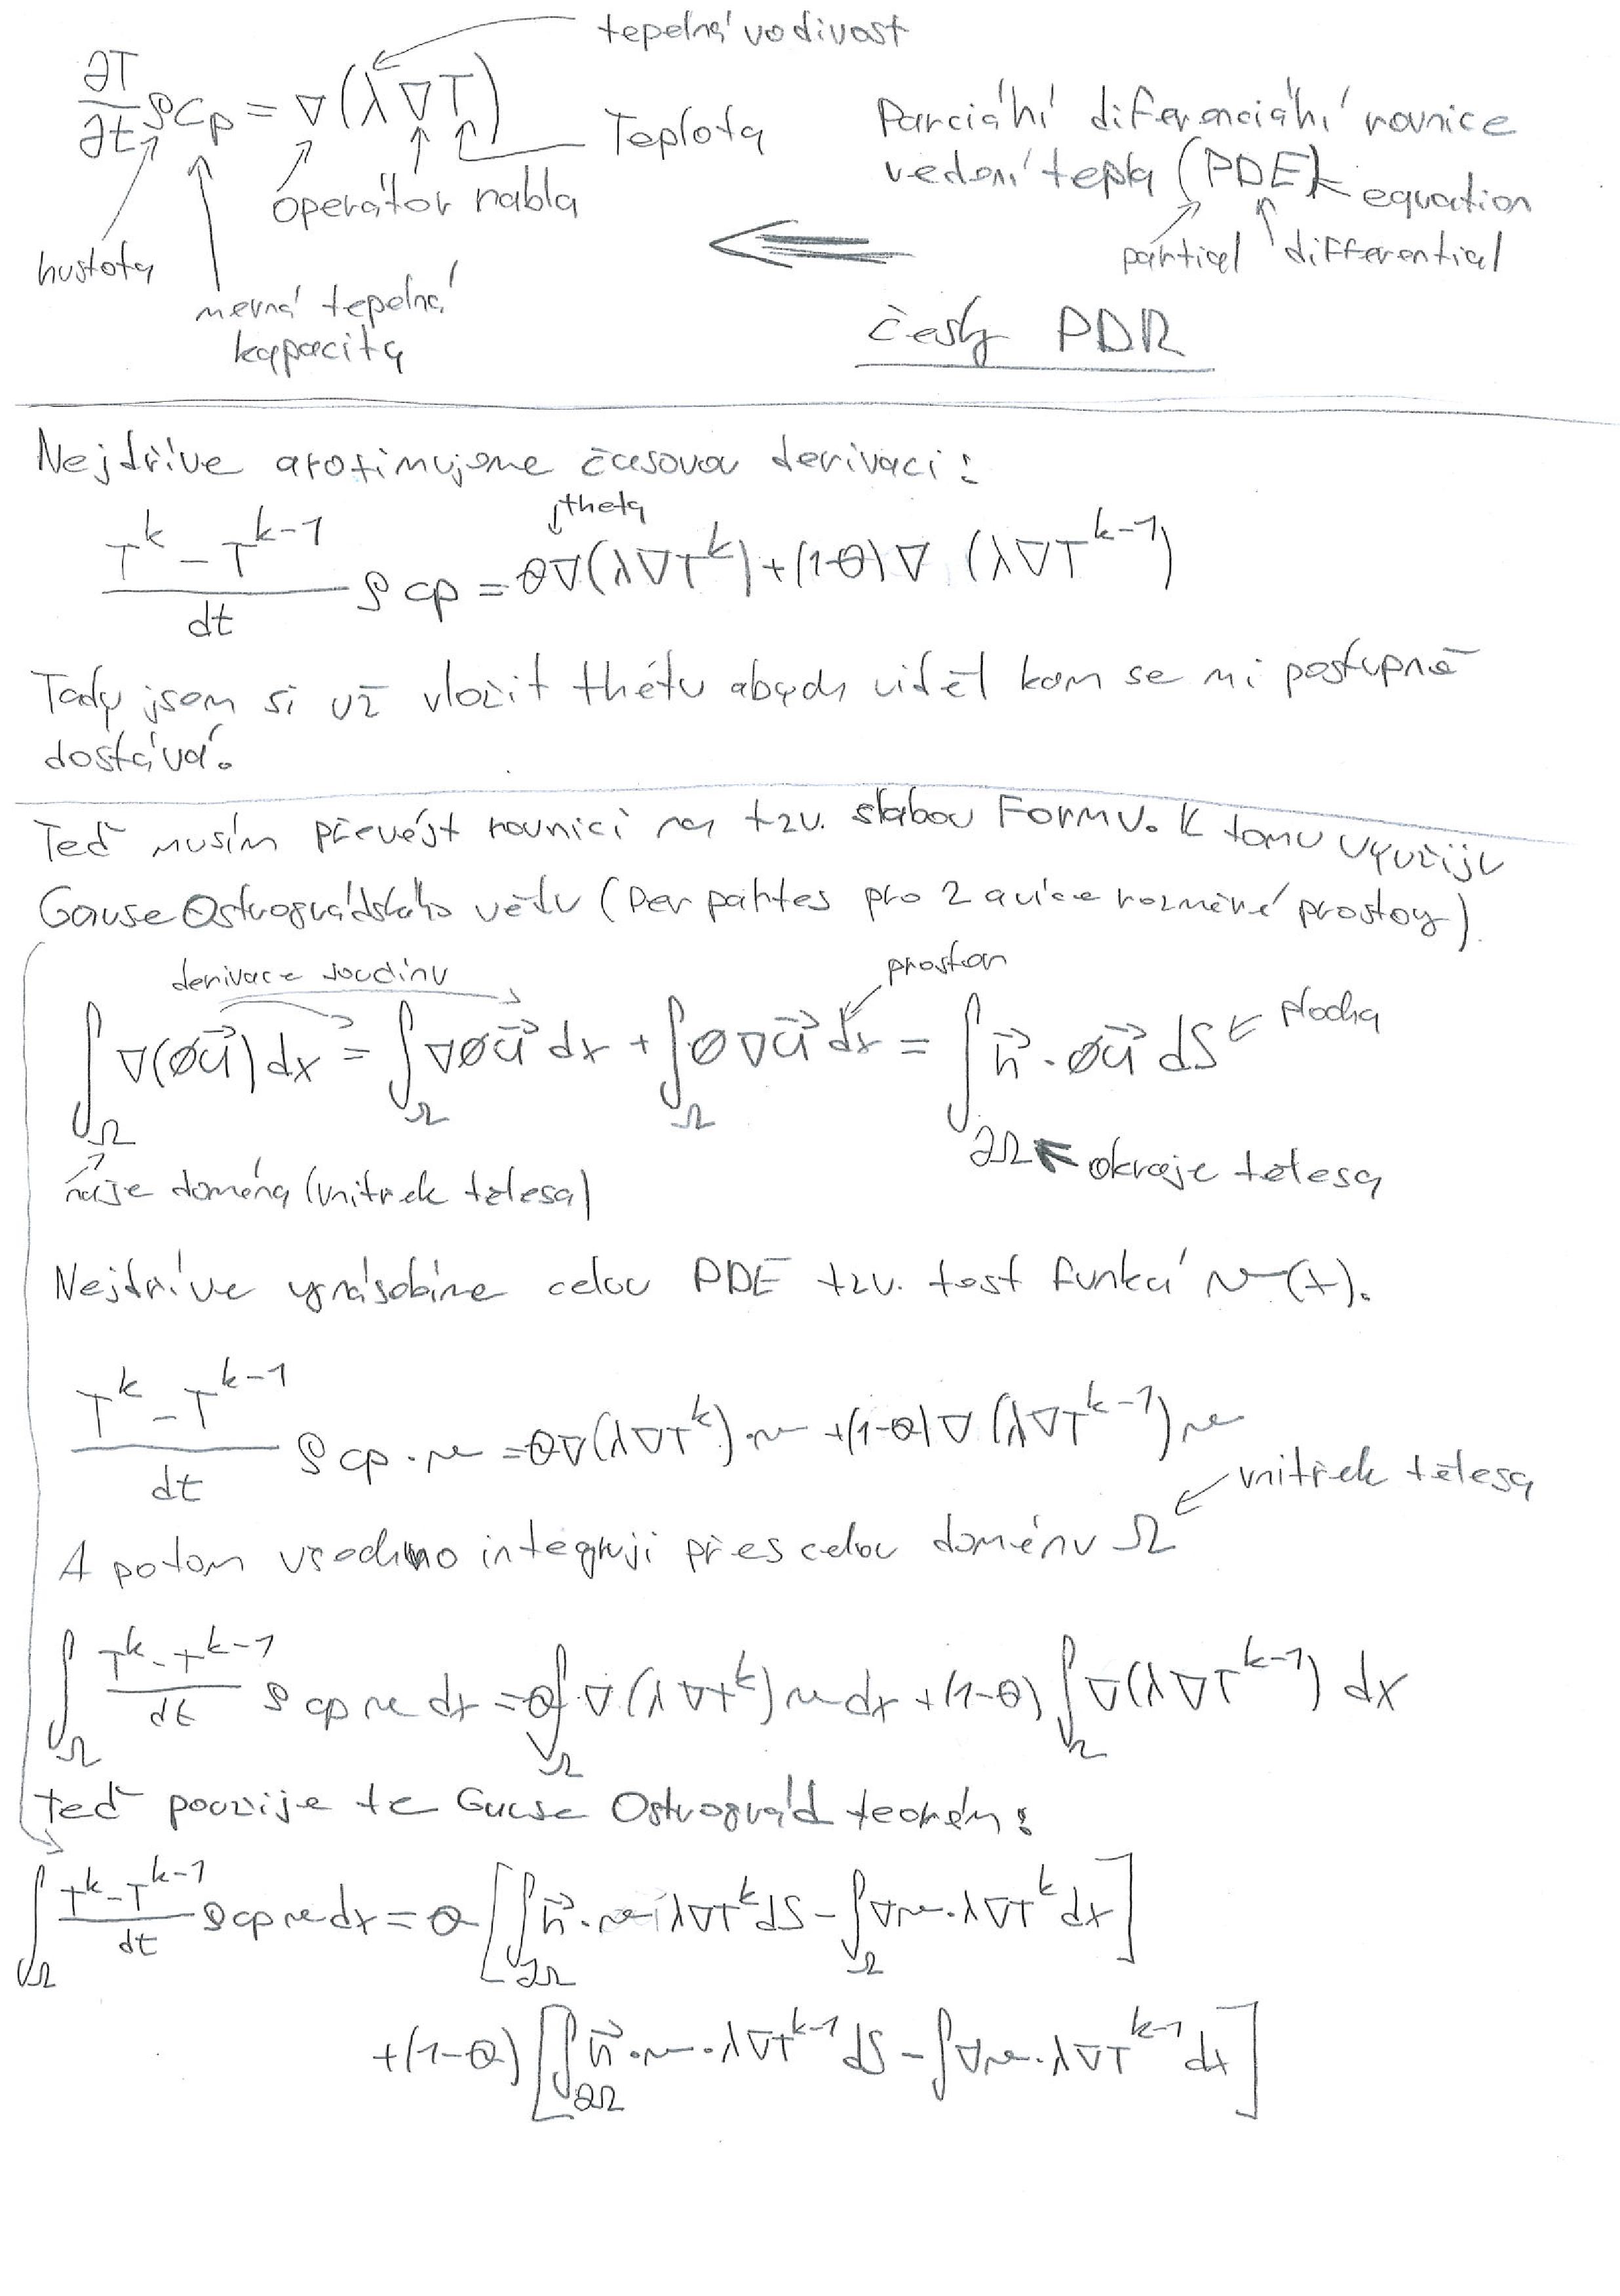 tepelná vodivost
∂T/∂t ρ cp = ∇(λ∇T)
Teplota
operátor nabla
hustota
měrná tepelná
kapacita
Parciální diferenciální rovnice
vedení tepla (PDE)
equation
partial differential
česky PDR
Nejdříve aproximujeme časovou derivaci:
theta
(T^k − T^(k−1))/dt ρ cp = θ∇(λ∇T^k) + (1−θ)∇ (λ∇T^(k−1))
Tady jsem si už vložil thétu abych viděl kam se mi postupně
dostává.
Teď musím převést rovnici na tzv. slabou Formu. K tomu využiju
Gause Ostrográdského větu (Per partes pro 2 a více rozměrné prostory).
derivace součinu
prostor
∫_Ω ∇(∅u⃗) dx = ∫_Ω ∇∅u⃗ dx + ∫_Ω ∅∇u⃗ dx = ∫_∂Ω n⃗ · ∅u⃗ dS
plocha
okraje tělesa
naše doména (vnitřek tělesa)
Nejdříve vynásobíme celou PDE tzv. test funkcí v(x).
(T^k − T^(k−1))/dt ρ cp · v = θ∇(λ∇T^k) · v + (1−θ)∇ (λ∇T^(k−1)) v
vnitřek tělesa
A potom všechno integruji přes celou doménu Ω
∫_Ω (T^k − T^(k−1))/dt ρ cp v dx = θ∫_Ω ∇(λ∇T^k) v dx + (1−θ) ∫_Ω ∇(λ∇T^(k−1)) dx
Teď použije te Gause Ostrográd teorém:
∫_Ω (T^k − T^(k−1))/dt ρ cp v dx = θ [∫_∂Ω n⃗ · v · λ∇T^k dS − ∫_Ω ∇v · λ∇T^k dx]
+(1−θ) [∫_∂Ω n⃗ · v · λ∇T^(k−1) dS − ∫ ∇v · λ∇T^(k−1) dx]